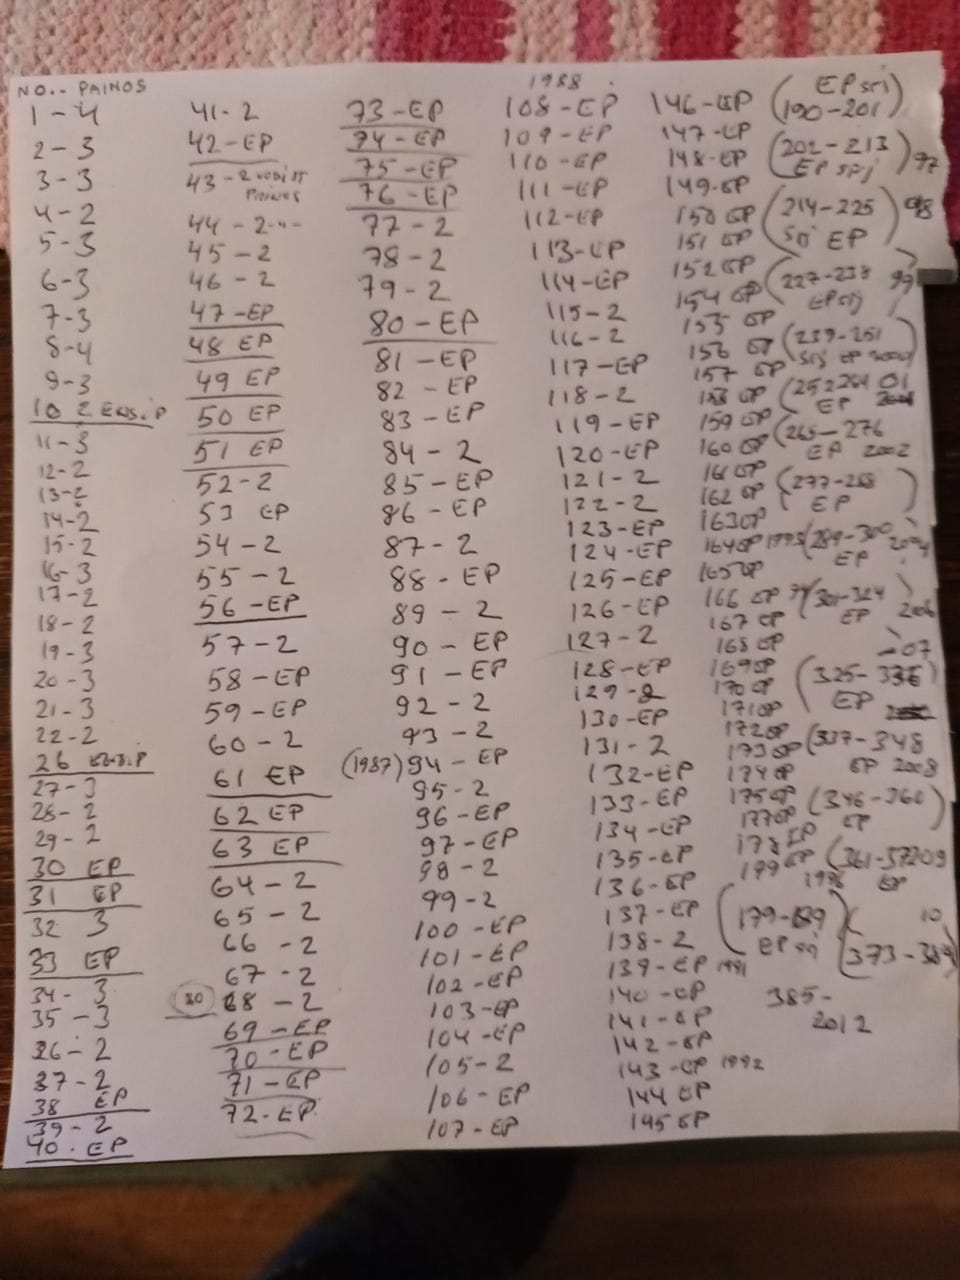 NO.. PAINOS
1-4
2-3
3-3
4-2
5-3
6-3
7-3
8-4
9-3
10 2
11-3
12-2
13-2
14-2
15-2
16-3
17-2
18-2
19-3
20-3
21-3
22-2
26
27-3
28-2
29-2
30 EP
31 EP
32 3
33 EP
34-3
35-3
36-2
37-2
38 EP
39-2
40. EP
41-2
42-EP
43-2
44-2
45-2
46-2
47-EP
48 EP
49 EP
50 EP
51 EP
52-2
53 EP
54-2
55-2
56-EP
57-2
58-EP
59-EP
60-2
61 EP
62 EP
63 EP
64-2
65-2
66-2
67-2
80 68-2
69-EP
70-EP
71-EP
72-EP
73-EP
74-EP
75-EP
76-EP
77-2
78-2
79-2
80-EP
81-EP
82-EP
83-EP
84-2
85-EP
86-EP
87-2
88-EP
89-2
90-EP
91-EP
92-2
93-2
(1987) 94-EP
95-2
96-EP
97-EP
98-2
99-2
100-EP
101-EP
102-EP
103-EP
104-EP
105-2
106-EP
107-EP
1988
108-EP
109-EP
110-EP
111-EP
112-EP
113-EP
114-EP
115-2
116-2
117-EP
118-2
119-EP
120-EP
121-2
122-2
123-EP
124-EP
125-EP
126-EP
127-2
128-EP
129-2
130-EP
131-2
132-EP
133-EP
134-EP
135-EP
136-EP
137-EP
138-2
139-EP 1991
140-EP
141-EP
142-EP
143-EP 1992
144 EP
145 EP
146-EP
147-EP
148-EP
149-EP
150 EP
151 EP
152 EP
154 EP
155 EP
156 EP
157 EP
158 EP
159 EP
160 EP
161 EP
162 EP
163 EP
164 EP 1993
165 EP
166 EP 94
167 EP
168 EP
169 EP
170 EP
171 EP
172 EP
173 EP
174 EP
175 EP
177 EP
178 EP
199 EP
1996
(179-189
EP
EP
(190-201)
(202-213) 97
EP
(214-225) 98
EP
(227-238 99
EP
(239-251)
EP
(252 264 01
EP
(265-276
EP 2002
(277-288)
EP
(289-300 2004
EP
(301-324
EP 2006
-07
(325-336
EP
(337-348
EP 2008
(346-360)
EP
(361-372 09
EP
10
(373-384)
385-
2012